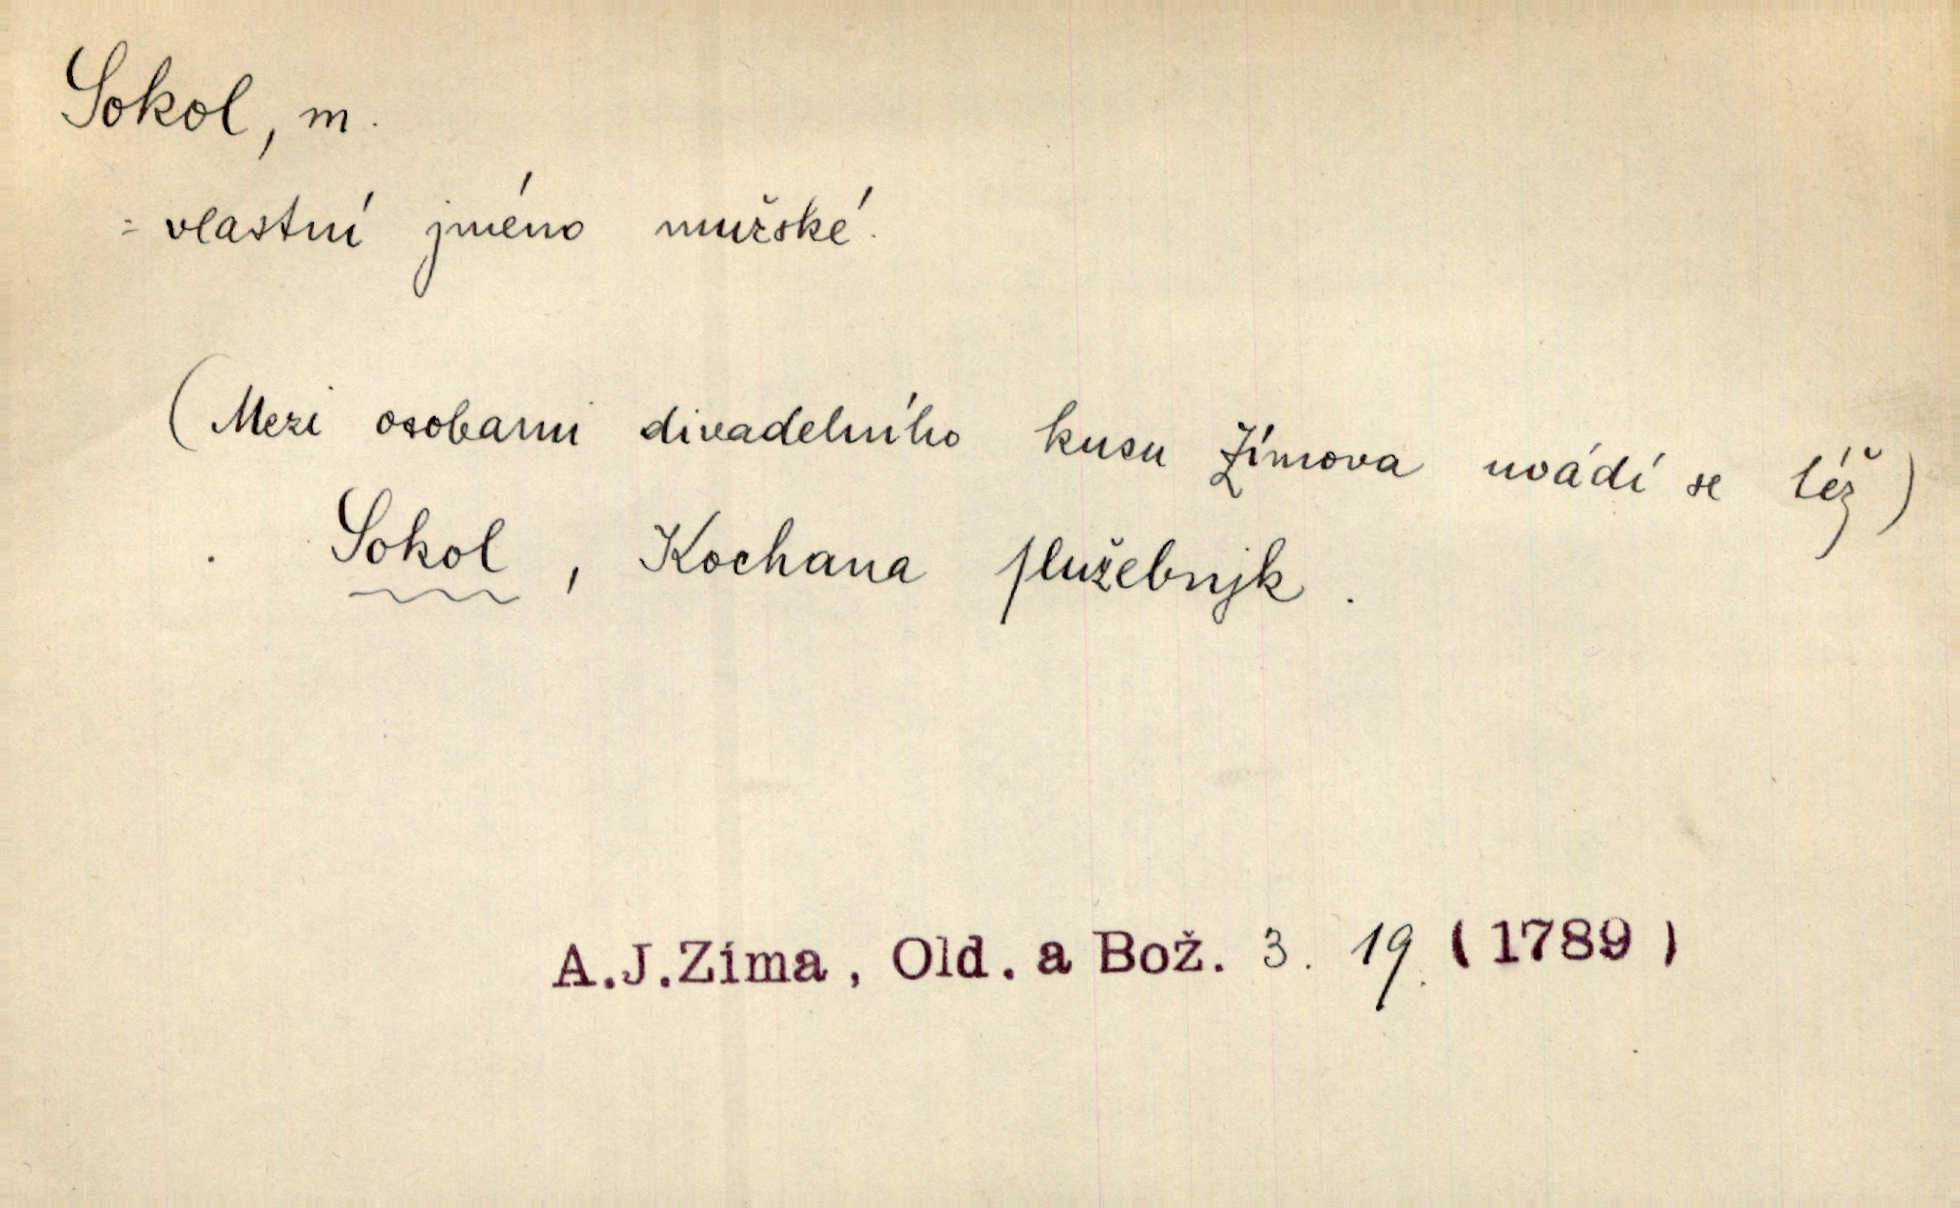 Sokol, m.
= vlastní jméno mužské.
(Mezi osobami divadelního kusu Zímova uvádí se též)
Sokol, Kochana ſlužebnjk.
A.J.Zíma, Old. a Bož. 3. 19. (1789)